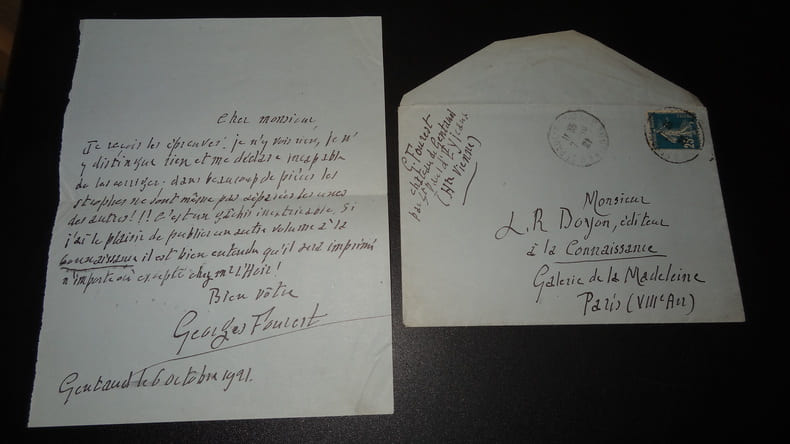 Cher monsieur
Je reçois les épreuves : je n'y vois rien, je n'
y distingue rien et me déclare incapable
de les corriger. dans beaucoup de pièces les
strophes ne sont même pas séparées les unes
des autres ! ! ! C'est un gâchis inextricable. Si
j'ai le plaisir de publier un autre volume à la
Connaissance il est bien entendu qu'il sera imprimé
n'importe où excepté chez mr L'Hoir !
Bien vôtre
Georges Fourest
Gentaud le 6 octobre 1921.
G. Fourest
château de Gentaud
par St Priest
(Hte Vienne)
25
Monsieur
L. R Doyon, éditeur
à la Connaissance
Galerie de la Madeleine
Paris (VIIIe Arr)